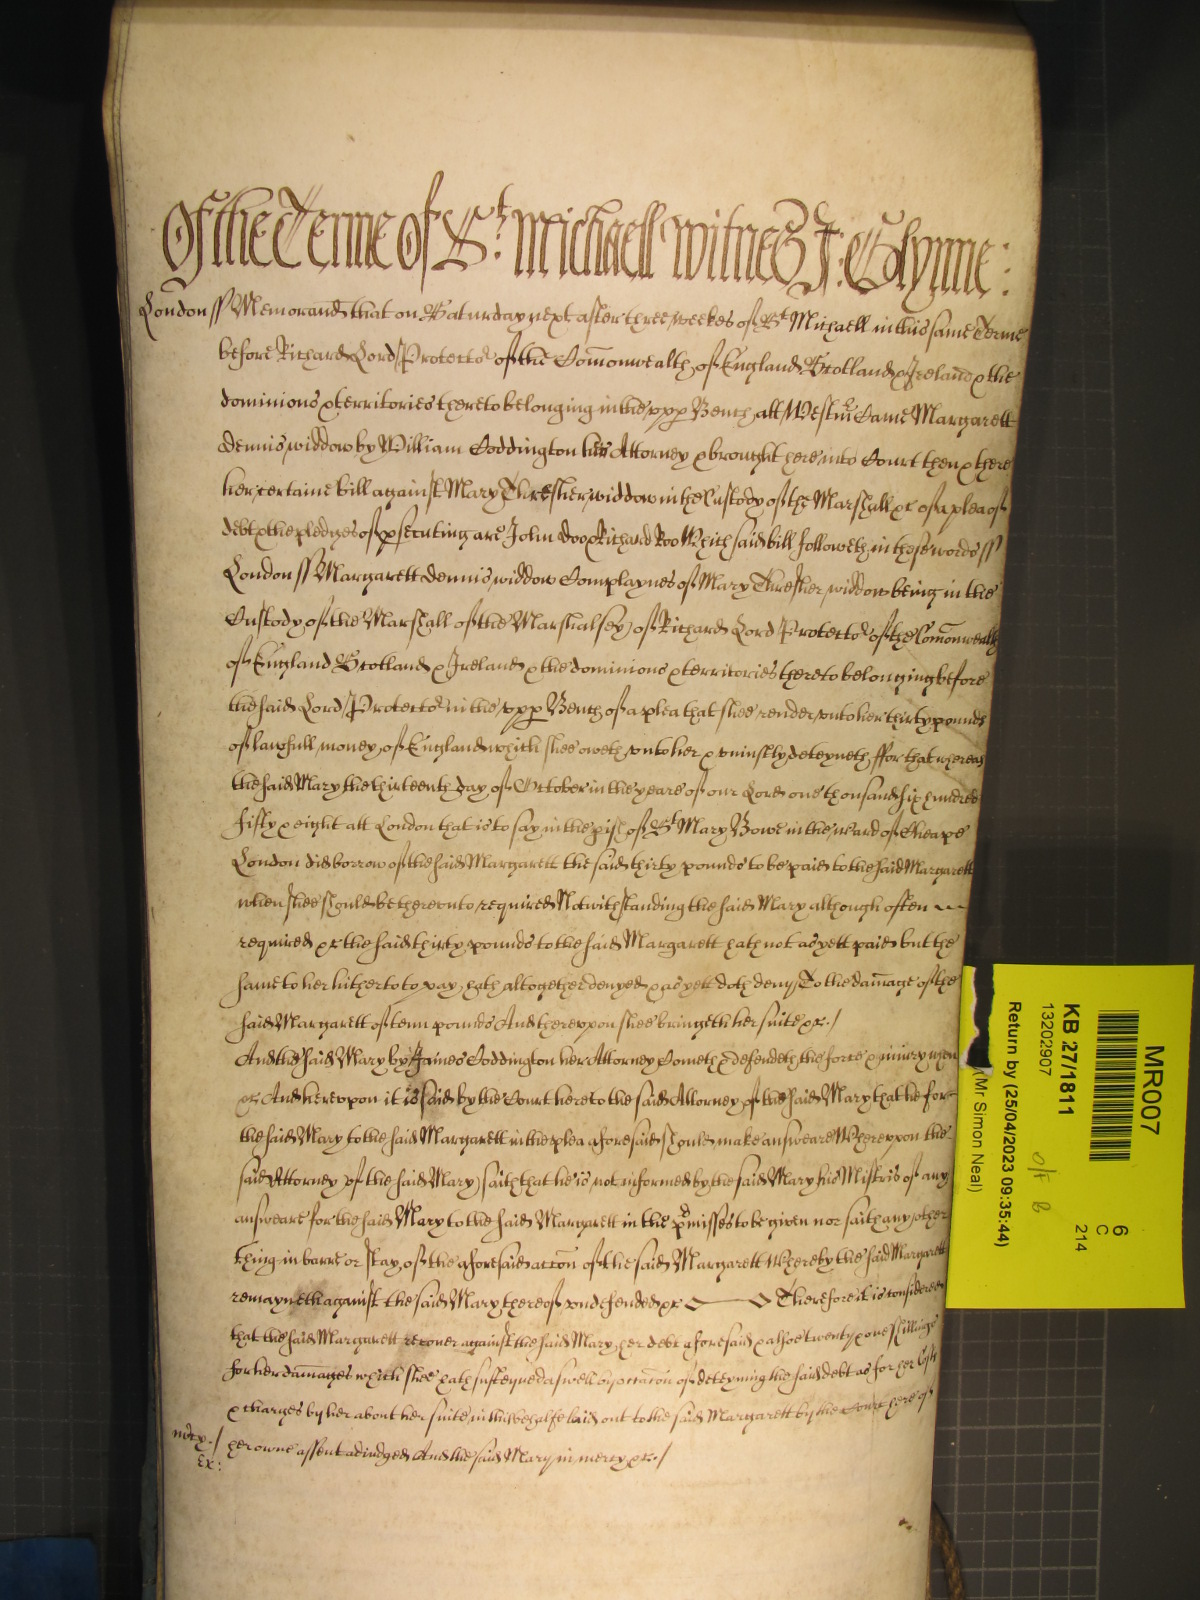 Of the Terme of St. Michaell Witnes J: Glynne:
London ss Memorand that on Saturday next after three weekes of St Michaell in this same Terme
before Richard Lord Protector of the Comonwealth of England Scotland & Ireland & the
dominions & territories thereto belonging in the upp Bench att Westmr Came Margarett
Dennis widdow by William Coddington her Attorney & brought here into Court then & there
her certaine bill against Mary Thresher widdow in the Custody of the Marshall &c of a plea of
debt & the pledges of psecuting are John Doo & Richard Roo Which said bill followeth in these words ss
London ss Margarett Dennis widdow Complaynes of Mary Thresher widdow being in the
Custody of the Marshall of the Marshalsey of Richard Lord Protector of the Comonwealth
of England Scotland & Ireland & the dominions & territories thereto belonging before
the said Lord Protector in the upp Bench of a plea that shee render unto her thirty pounds
of lawfull money of England which shee oweth unto her & uniustly deteyneth ffor that whereas
the said Mary the thirteenth day of October in the yeare of our Lord one thousand six hundred
fifty & eight att London that is to say in the pish of St Mary Bowe in the ward of Cheape
London did borrow of the said Margarett the said thirty pounds to be paid to the said Margarett
when shee should be thereunto required Notwithstanding the said Mary although often
required &c the said thirty pounds to the said Margarett hath not as yett paid but the
same to her hitherto to pay hath altogether denyed & as yett doth deny To the damage of the
said Margarett of tenn pounds And thereupon shee bringeth her suite &c./
And the said Mary by James Coddington her Attorney Cometh & defendeth the force & iniury when
&c And hereupon it is said by the Court here to the said Attorney of the said Mary that he for
the said Mary to the said Margarett in the plea aforesaid should make answeare Whereupon the
said Attorney of the said Mary saith that he is not informed by the said Mary his Mistris of any
answeare for the said Mary to the said Margarett in the pmisses to be given nor saith any other
thing in barre or stay of the aforesaid accon of the said Margarett Whereby the said Margarett
remayneth against the said Mary thereof undefended &c Therefore it is considered
that the said Margarett recover against the said Mary her debt aforesaid & alsoe twenty & one shillings
for her damages which shee hath susteyned aswell by occacon of deteyning the said debt as for her Costs
& charges by her about her suite in this behalfe laid out to the said Margarett by the Court here of
mercy./ her owne assent adiudged And the said Mary in mercy &c./
Ex:
MR007
6
C
214
KB 27/1811
13202907
o/f b
Return by (25/04/2023 09:35:44)
(Mr Simon Neal)